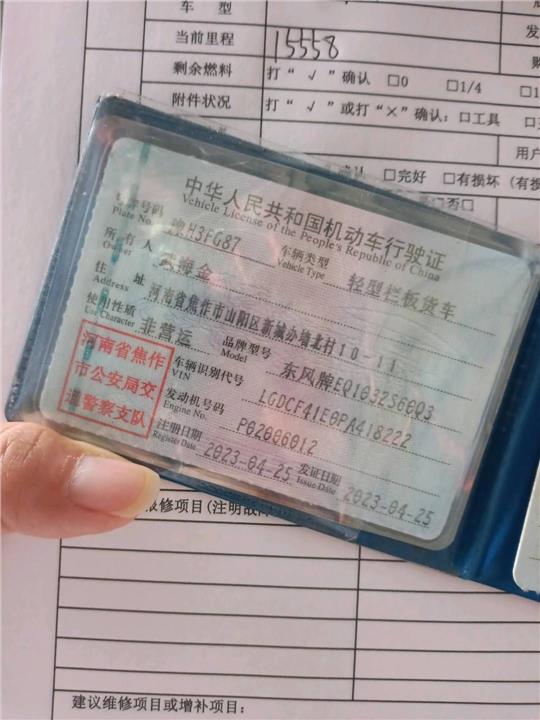 车 型
发
当前里程
15558
购
剩余燃料
打“√”确认
□0
□1/4
□1
附件状况
打“√”或打“×”确认：□工具
用户
确认
□完好
□有损坏 (有损
□否□
中华人民共和国机动车行驶证
Vehicle License of the People's Republic of China
号牌号码
Plate No.
豫H3FG87
车辆类型
Vehicle Type
轻型栏板货车
所有人
Owner
海金
住址
Address
河南省焦作市山阳区新城办墙北村10-11
使用性质
Use Character
非营运
品牌型号
Model
东风牌EQ1032S60Q3
河南省焦作
市公安局交
通警察支队
车辆识别代号
VIN
LGDCF41E0PA418222
发动机号码
Engine No.
P02006012
注册日期
Register Date
2023-04-25
发证日期
Issue Date
2023-04-25
报修项目(注明故障
建议维修项目或增补项目：